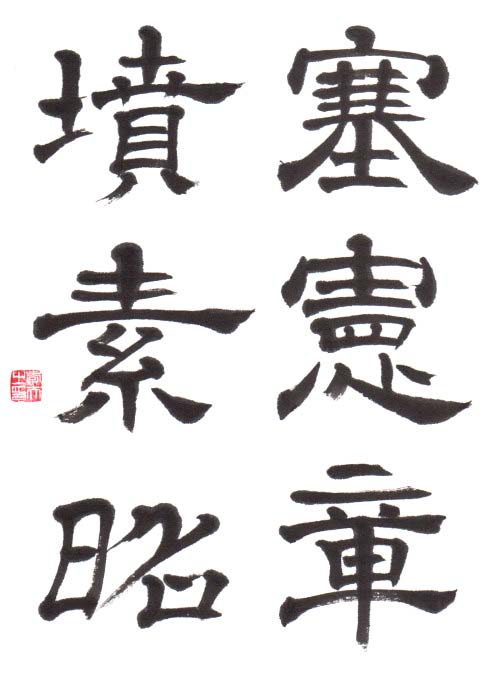 塞憲章
墳素昭